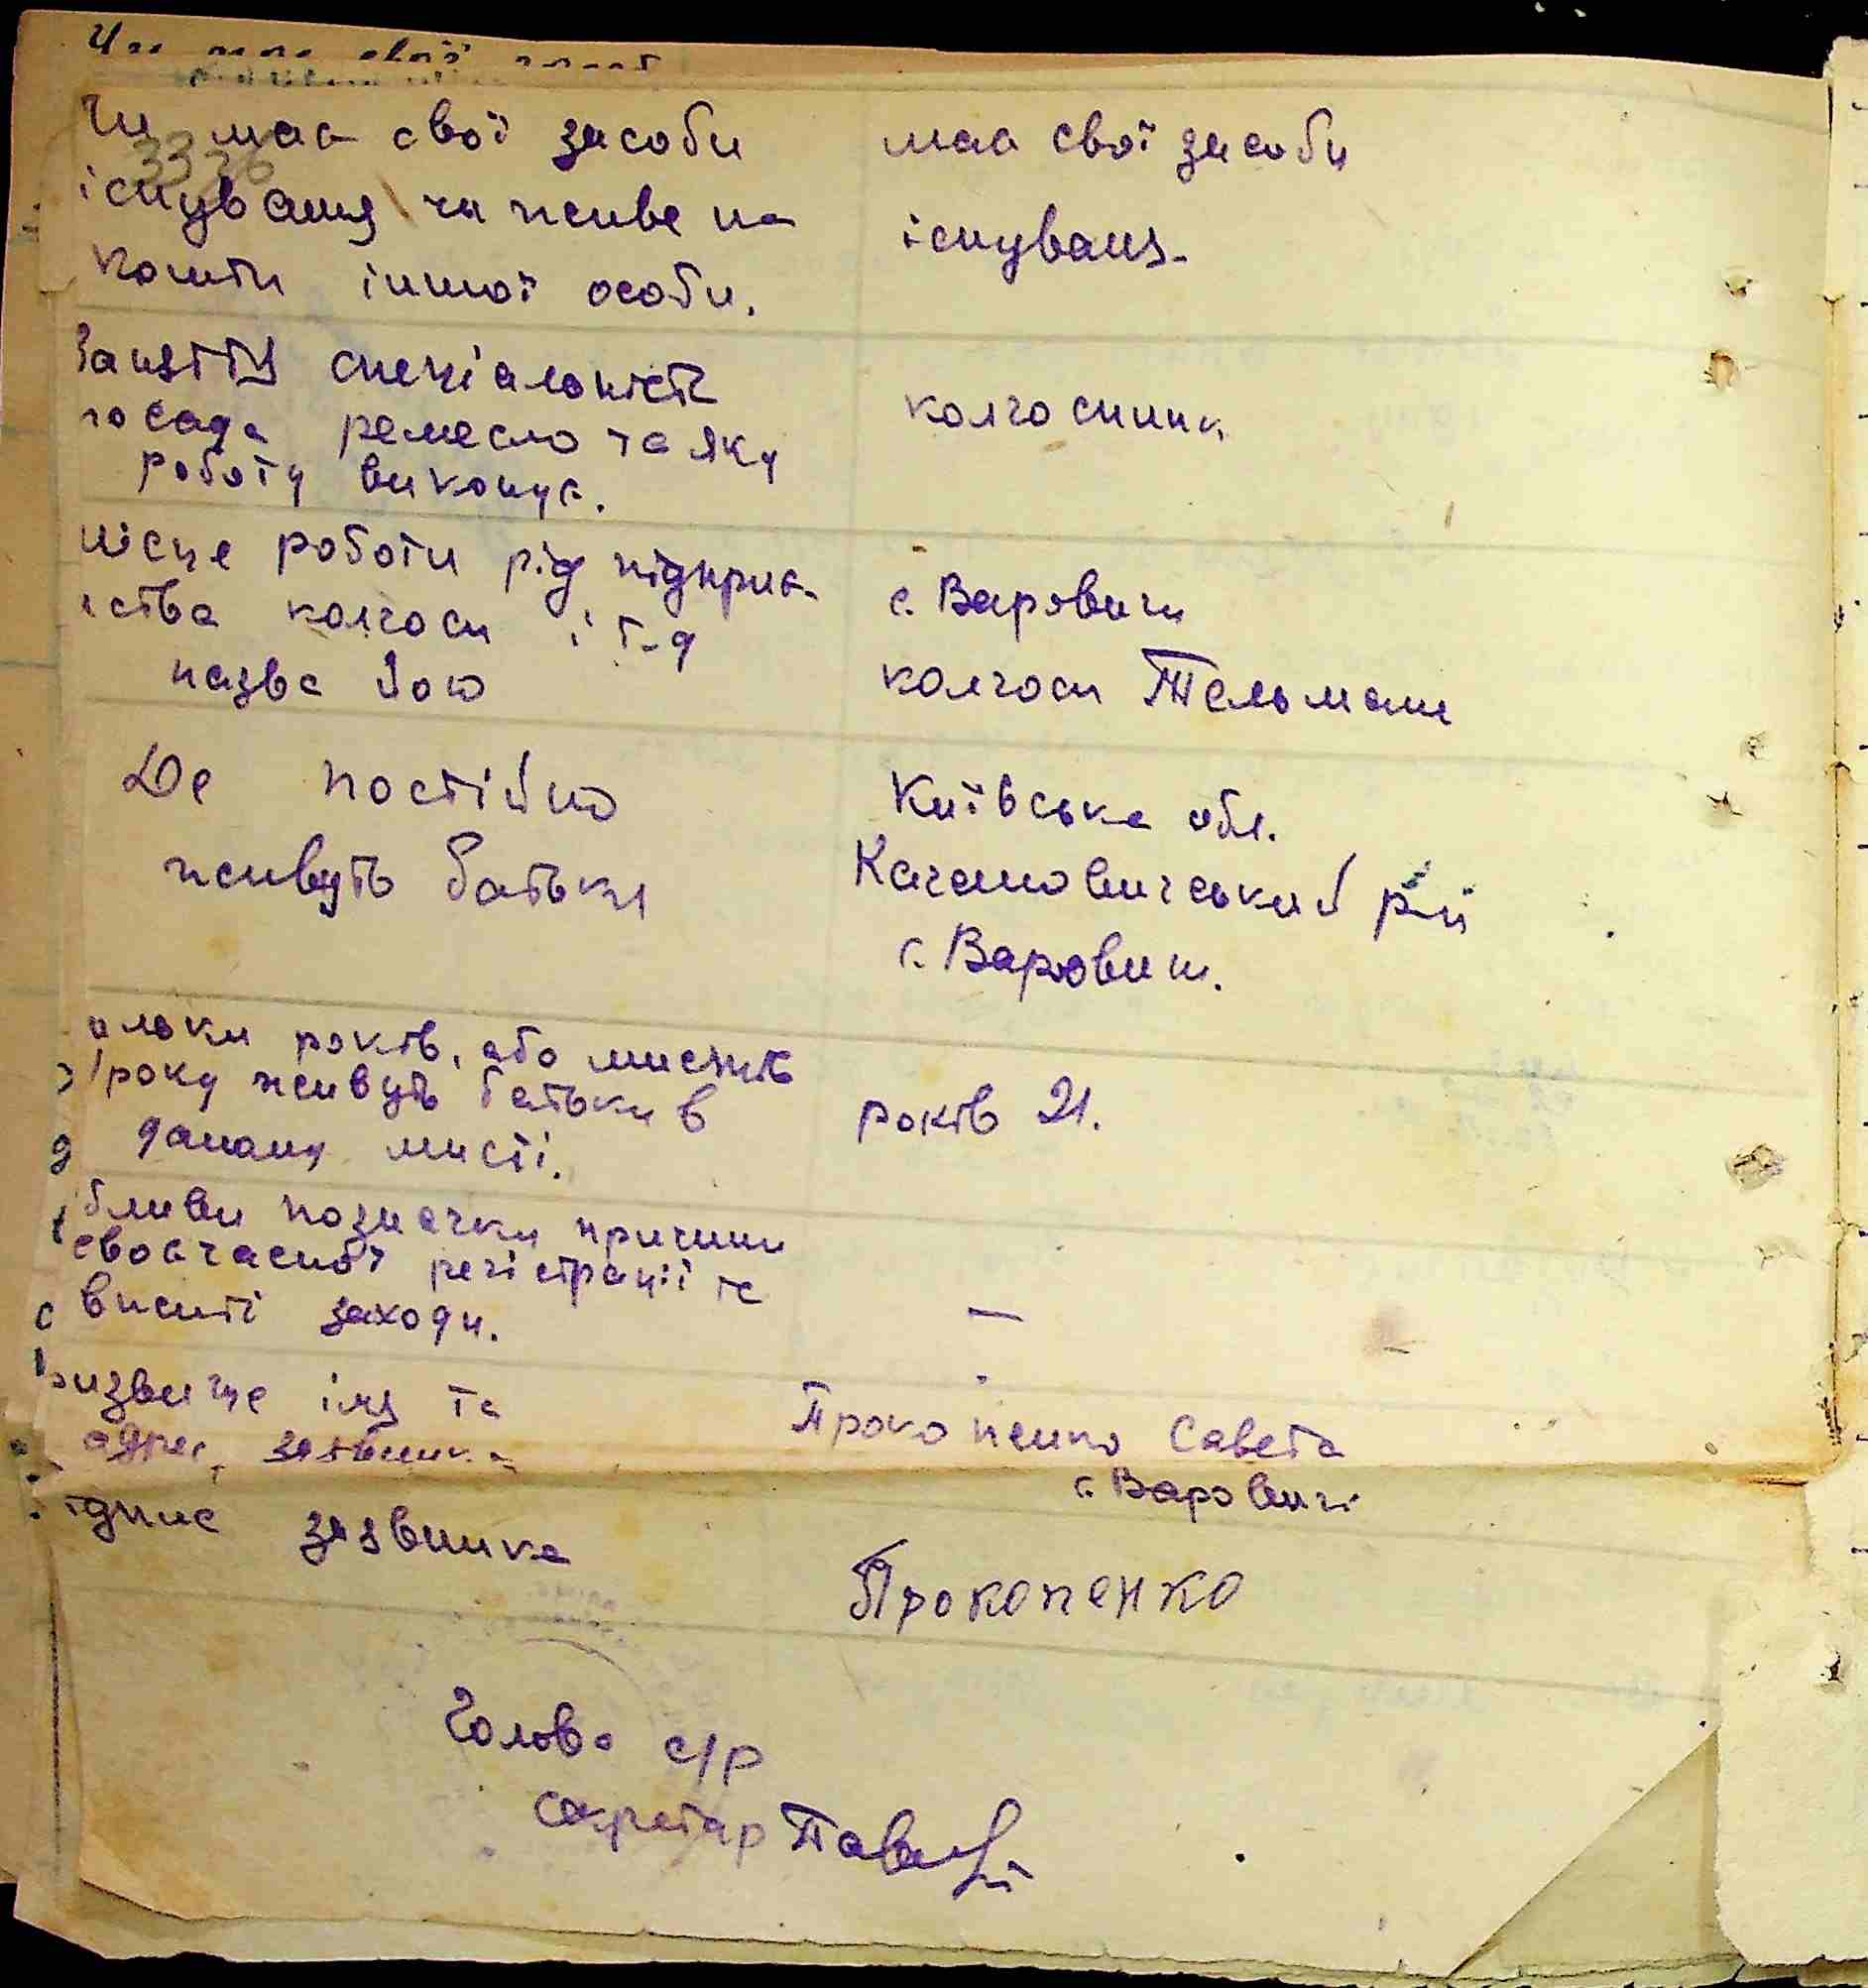 Чи має свої засоби
3326
існування чи живе на
кошти іншої особи.
має свої засоби
існуваня.
Заняття спеціальність
посада ремесло та яку
роботу виконує.
колгоспник
місце роботи рід підприє-
мства колгосп і т-д
назва його
с. Варовичи
колгосп Тельмана
Де постійно
живуть батьки
Київська обл.
Кагановичський р-н
с. Варовичі.
ільки років, або мисяців
року живуть батьки в
даному мисті.
років 21.
бливи позначки причини
своєчасної регістрації та
вжиті заходи.
—
ризвище імя та
адрес заявника
Прокопенко Савета
с. Варовичі
ідпис заявника
Прокопенко
Голова с/р
секретар